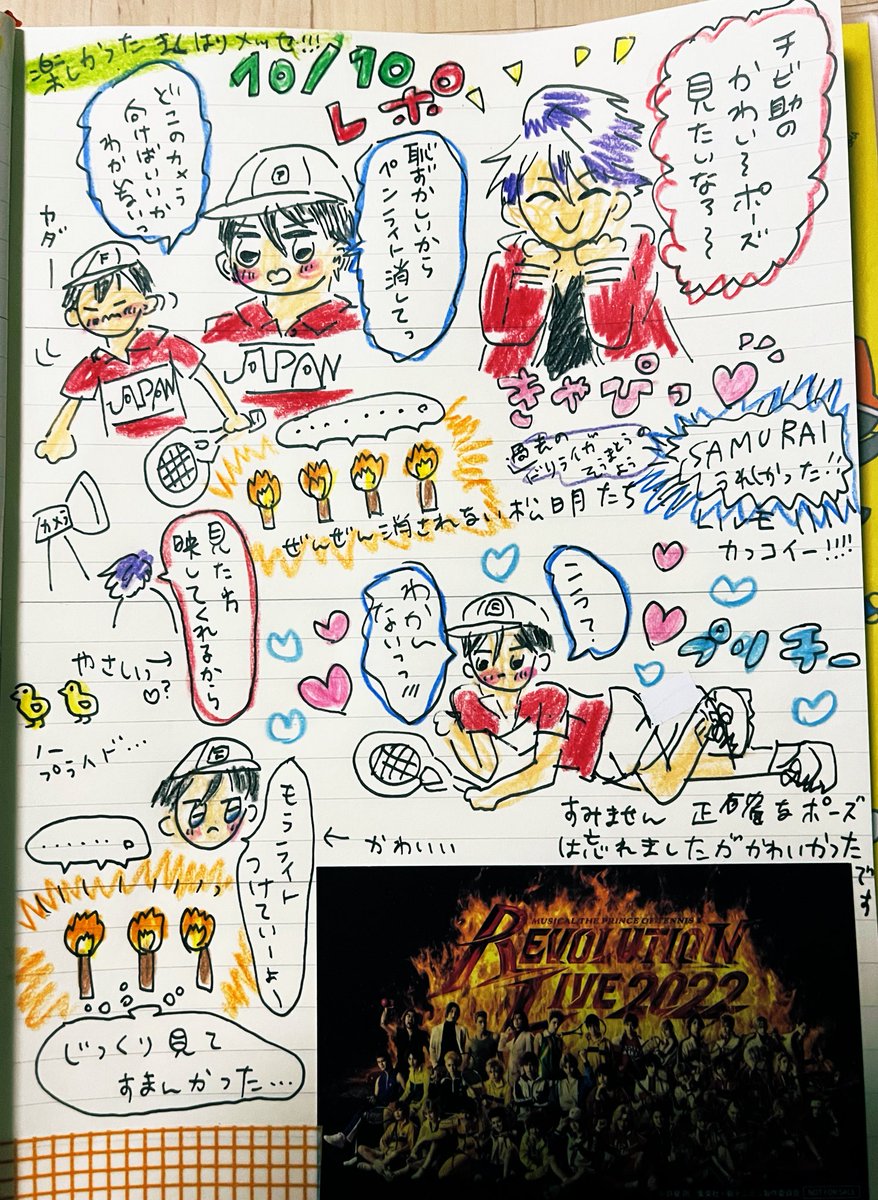 楽しかったまくはりメッセ!!!
10/10
レポ
チビ助の
かわい〜ポーズ
見たいな〜〜
どこのカメラ
向けばいいか
わかんないっ
恥ずかしいから
ペンライト消してっ
ヤダー
JAPAN
JAPAN
きゃぴっ
・・・・・・。
ぜんぜん消されない松明たち
過去の
SAMURAI
うれしかった!!
カッコイー!!!!
カメラ
見たれ
映してくれるから
やさしい→
♡?
プライド…
こうって?
わかん
ないっっ!!!
プリチー
すみません 正確なポーズ
は忘れましたがかわいかった
です
もうライト
つけていーよー
← かわいい
・・・・・・。
じっくり見て
すまんかった…
MUSICAL THE PRINCE OF TENNIS
REVOLUTION
LIVE 2022